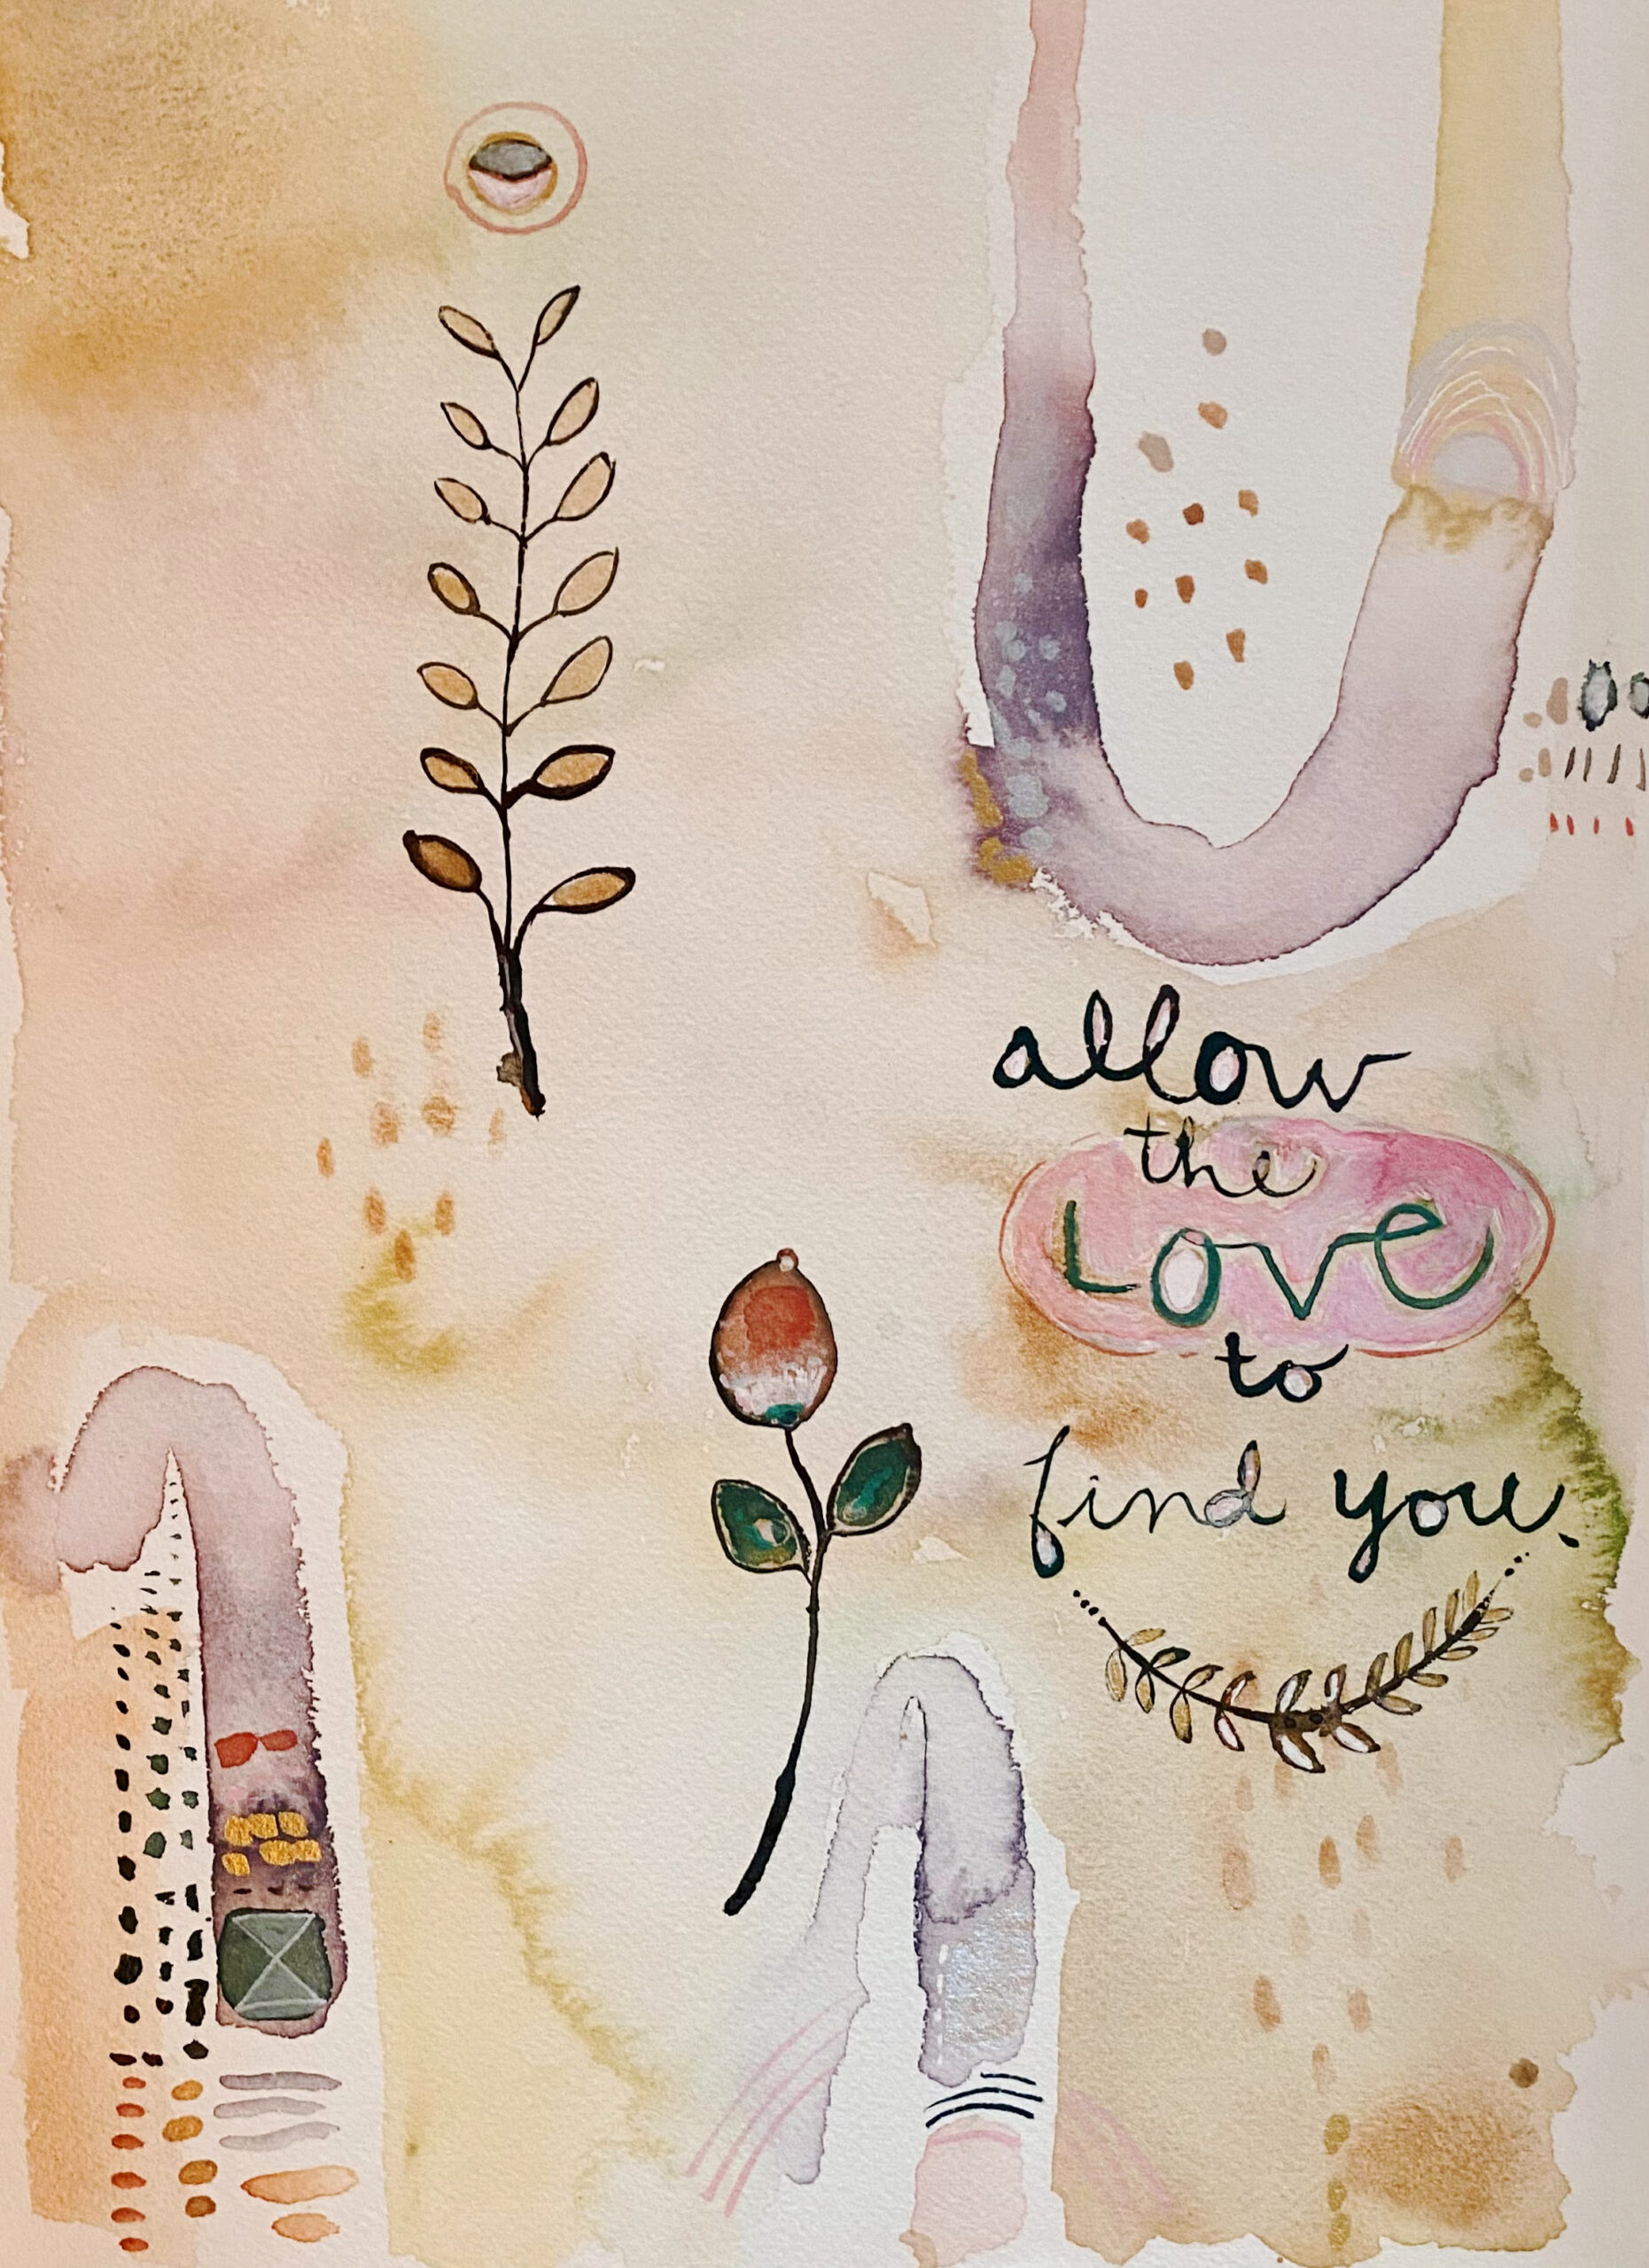 allow
the
Love
to
find you.